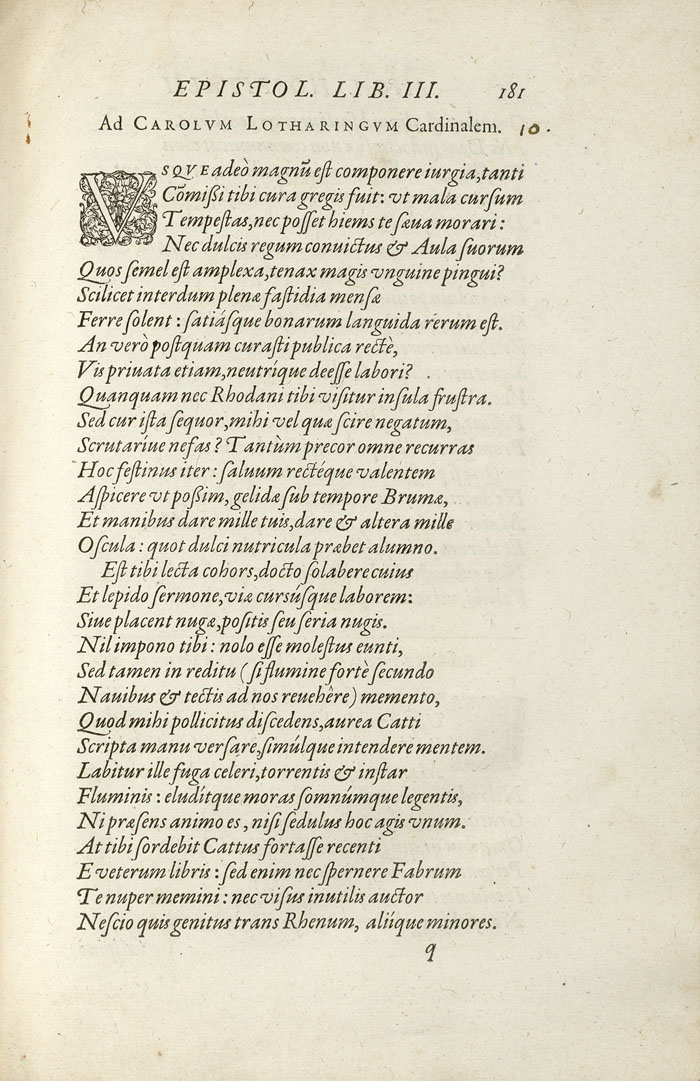 EPISTOL. LIB. III. 181
Ad CAROLVM LOTHARINGVM Cardinalem. 10.
VSQVE adeò magnũ est componere iurgia, tanti
Cõmißi tibi cura gregis fuit: vt mala cursum
Tempestas, nec posset hiems te sæua morari:
Nec dulcis regum conuictus & Aula suorum
Quos semel est amplexa, tenax magis vnguine pingui?
Scilicet interdum plenæ fastidia mensæ
Ferre solent: satiásque bonarum languida rerum est.
An verò postquam curasti publica rectè,
Vis priuata etiam, neutríque deesse labori?
Quanquam nec Rhodani tibi visitur insula frustra.
Sed cur ista sequor, mihi vel quæ scire negatum,
Scrutariue nefas? Tantùm precor omne recurras
Hoc festinus iter: saluum rectéque valentem
Aspicere vt poßim, gelidæ sub tempore Brumæ,
Et manibus dare mille tuis, dare & altera mille
Oscula: quot dulci nutricula præbet alumno.
Est tibi lecta cohors, docto solabere cuius
Et lepido sermone, viæ cursúsque laborem:
Siue placent nugæ, positis seu seria nugis.
Nil impono tibi: nolo esse molestus eunti,
Sed tamen in reditu (si flumine fortè secundo
Nauibus & tectis ad nos reuehêre) memento,
Quod mihi pollicitus discedens, aurea Catti
Scripta manu versare, simúlque intendere mentem.
Labitur ille fuga celeri, torrentis & instar
Fluminis: eludítque moras somnúmque legentis,
Ni præsens animo es, nisi sedulus hoc agis vnum.
At tibi sordebit Cattus fortasse recenti
E veterum libris: sed enim nec spernere Fabrum
Te nuper memini: nec visus inutilis auctor
Nescio quis genitus trans Rhenum, aliíque minores.
q